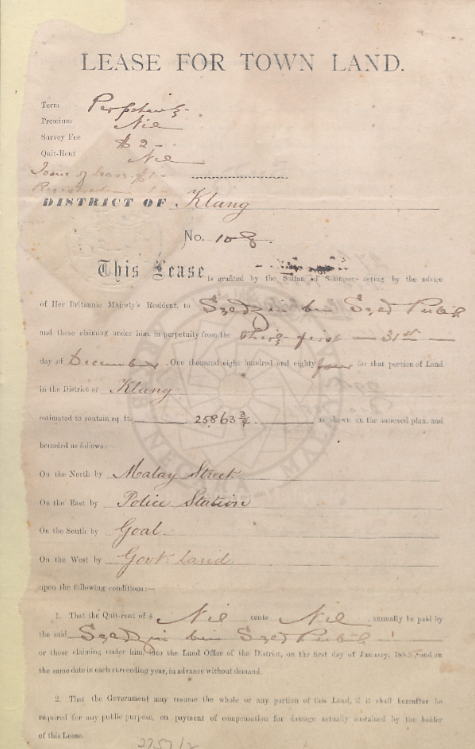 LEASE FOR TOWN LAND.
Term
Premium Nil
Survey Fee $2-
Quit-Rent Nil
DISTRICT OF Klang
No. 108
This Lease is granted by the Sultan of Selangor acting by the advice
of Her Britannic Majesty's Resident, to Syed bin Syed
and those claiming under him in perpetuity from the thirty first — 31st —
day of December One thousand eight hundred and eighty four for that portion of Land
in the District of Klang
estimated to contain sq. ft. 25863¾ as shown on the annexed plan, and
bounded as follows:
On the North by Malay Street
On the East by Police Station
On the South by Goal
On the West by Govt Land
upon the following conditions:—
1. That the Quit-rent of $ Nil cents Nil annually be paid by
the said Syed bin Syed
or those claiming under him, into the Land Office of the District, on the first day of January, and on
the same date in each succeeding year, in advance without demand.
2. That the Government may resume the whole or any portion of this Land, if it shall hereafter be
required for any public purpose, on payment of compensation for damage actually sustained by the holder
of this Lease.